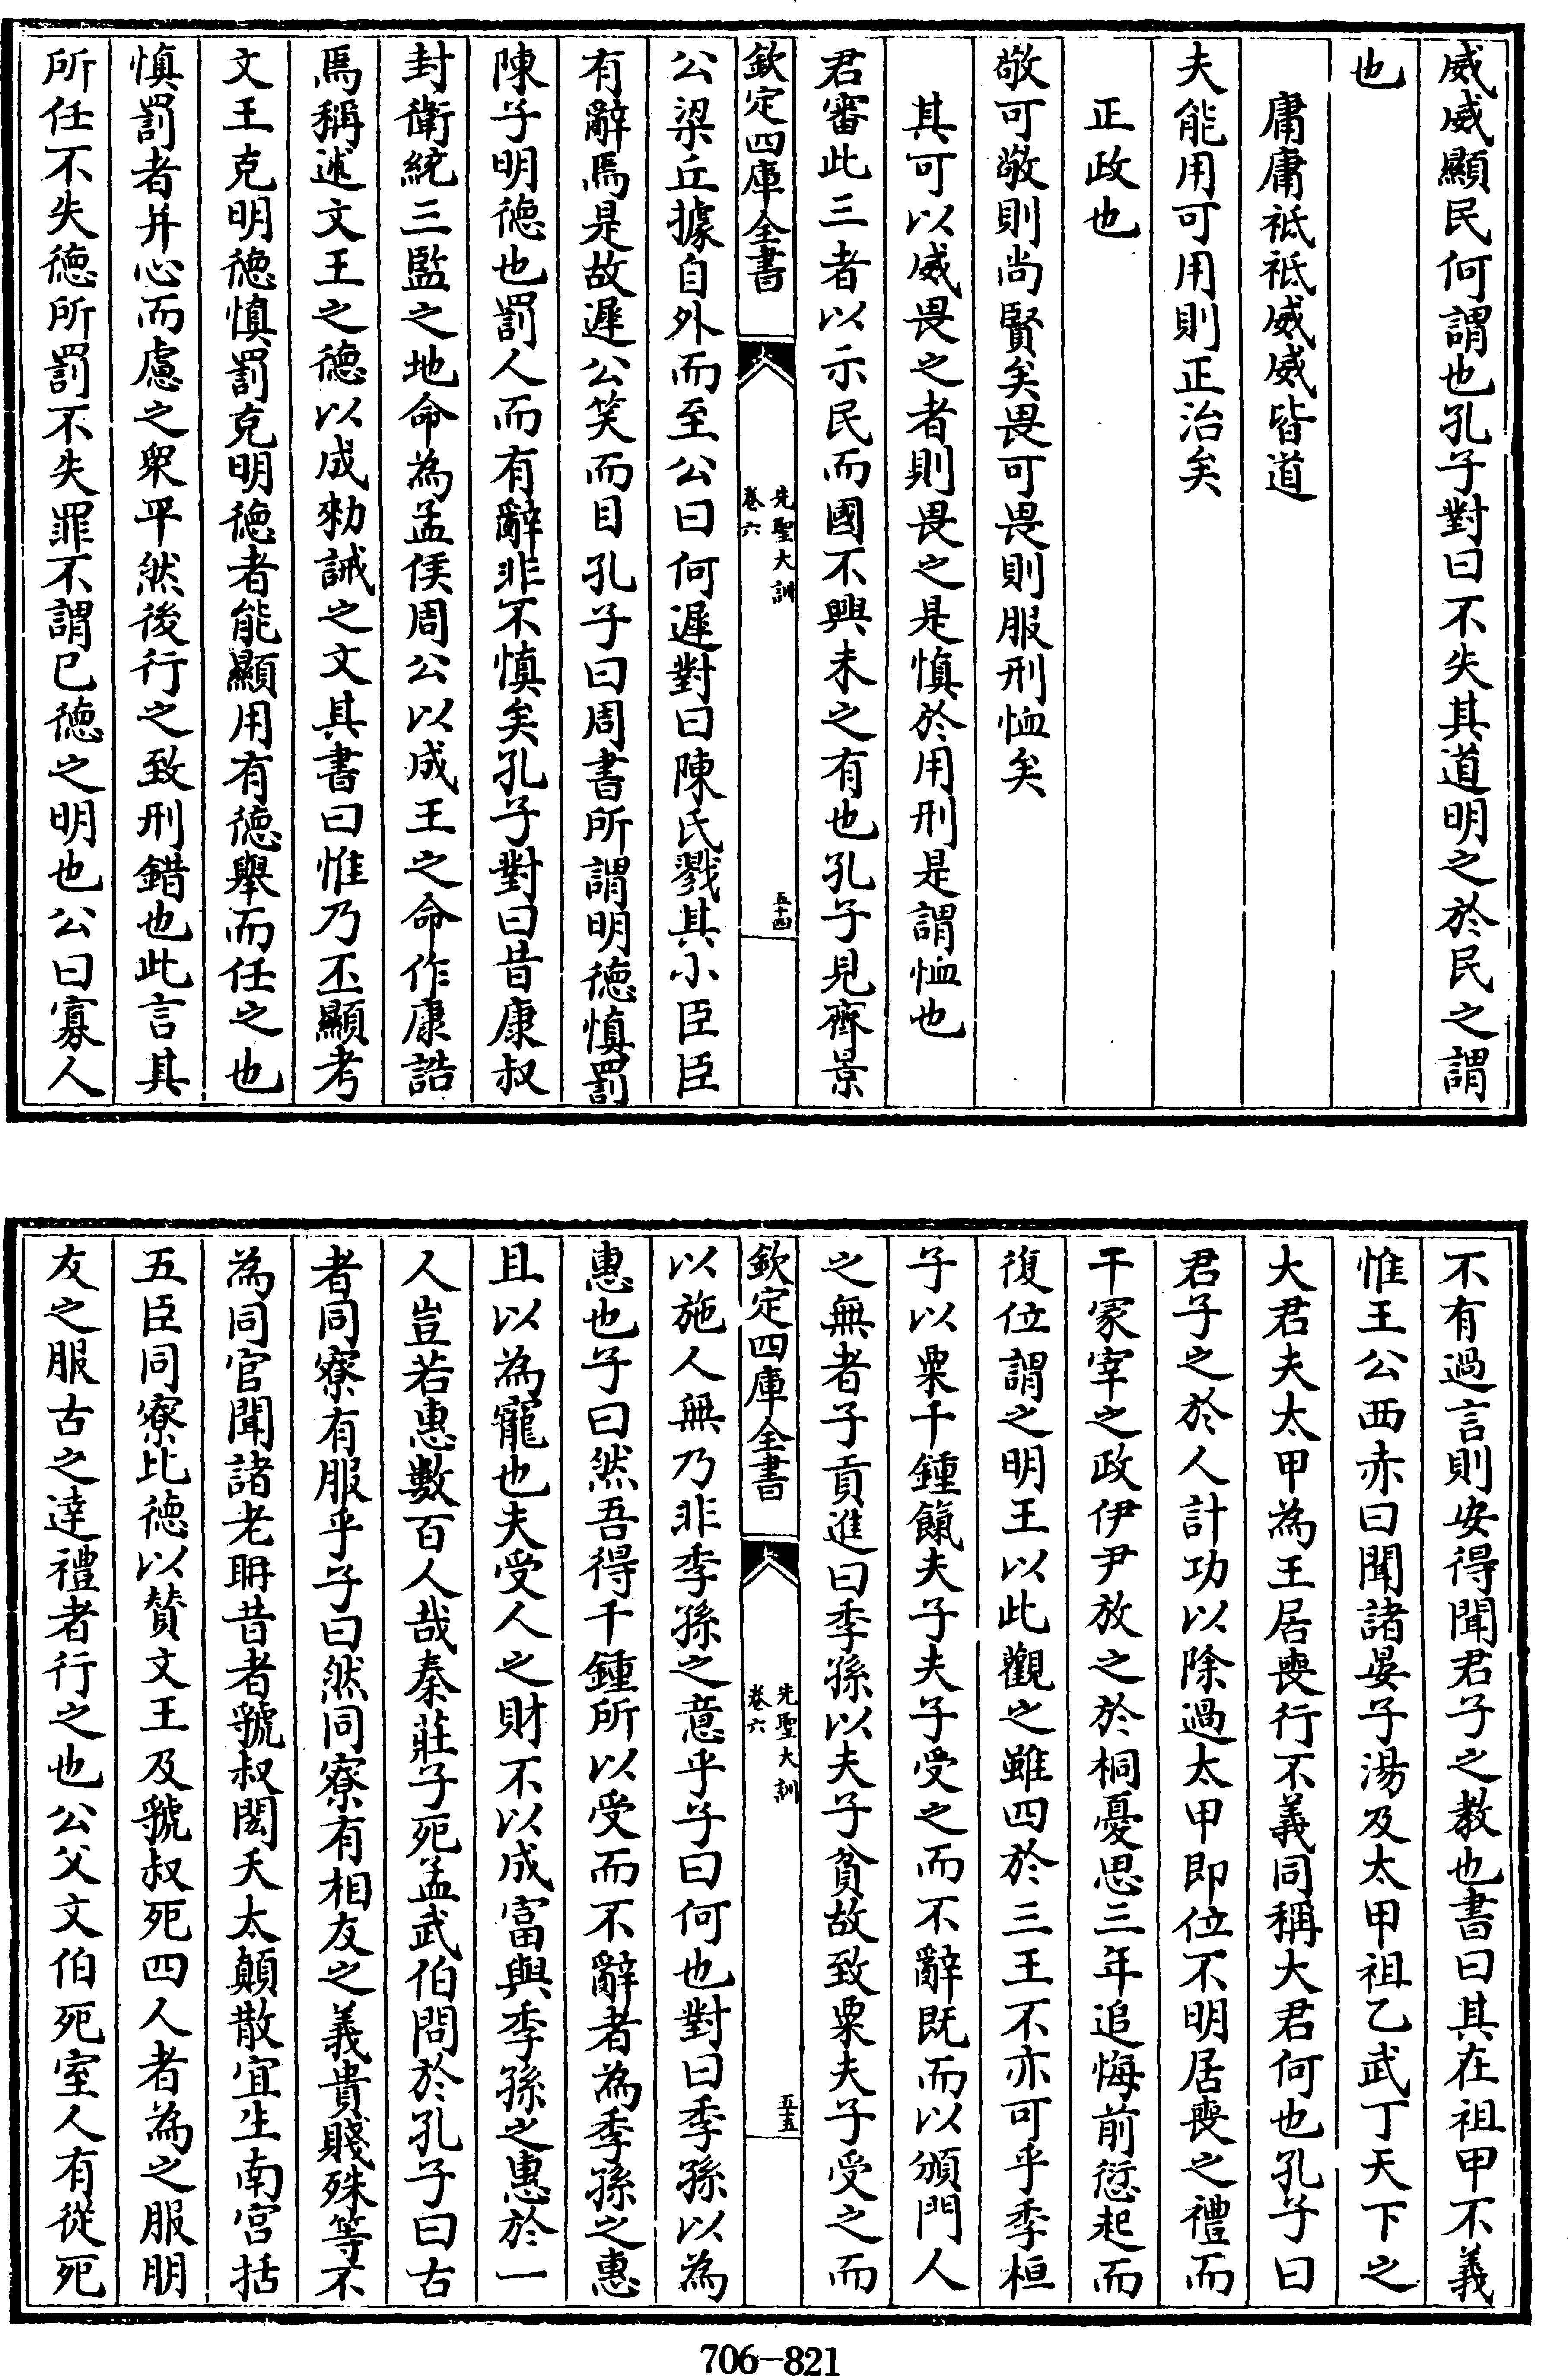 威威顯民何謂也孔子對曰不失其道明之於民之謂
也
庸庸祗祗威威皆道
夫能用可用則正治矣
正政也
敬可敬則尚賢矣畏可畏則服刑恤矣
其可以威畏之者則畏之是慎於用刑是謂恤也
君審此三者以示民而國不興未之有也孔子見齊景
欽定四庫全書
先聖大訓
卷六
五十四
公梁丘據自外而至公曰何遲對曰陳氏戮其小臣臣
有辭焉是故遲公笑而目孔子曰周書所謂明德慎罰
陳子明德也罰人而有辭非不慎矣孔子對曰昔康叔
封衛統三監之地命為孟侯周公以成王之命作康誥
焉稱述文王之德以成勑誡之文其書曰惟乃丕顯考
文王克明德慎罰克明德者能顯用有德舉而任之也
慎罰者并心而慮之衆平然後行之致刑錯也此言其
所任不失德所罰不失罪不謂已德之明也公曰寡人
不有過言則安得聞君子之教也書曰其在祖甲不義
惟王公西赤曰聞諸晏子湯及太甲祖乙武丁天下之
大君夫太甲為王居喪行不義同稱大君何也孔子曰
君子之於人計功以除過太甲即位不明居喪之禮而
干冢宰之政伊尹放之於桐憂思三年追悔前愆起而
復位謂之明王以此觀之雖四於三王不亦可乎季桓
子以粟千鍾餼夫子夫子受之而不辭既而以頒門人
之無者子貢進曰季孫以夫子貧故致粟夫子受之而
欽定四庫全書
先聖大訓
卷六
五十五
以施人無乃非季孫之意乎子曰何也對曰季孫以為
惠也子曰然吾得千鍾所以受而不辭者為季孫之惠
且以為寵也夫受人之財不以成富與季孫之惠於一
人豈若惠數百人哉秦莊子死孟武伯問於孔子曰古
者同寮有服乎子曰然同寮有相友之義貴賤殊等不
為同官聞諸老聃昔者虢叔閎夭太顛散宜生南宮括
五臣同寮比德以贊文王及虢叔死四人者為之服朋
友之服古之達禮者行之也公父文伯死室人有從死
706-821